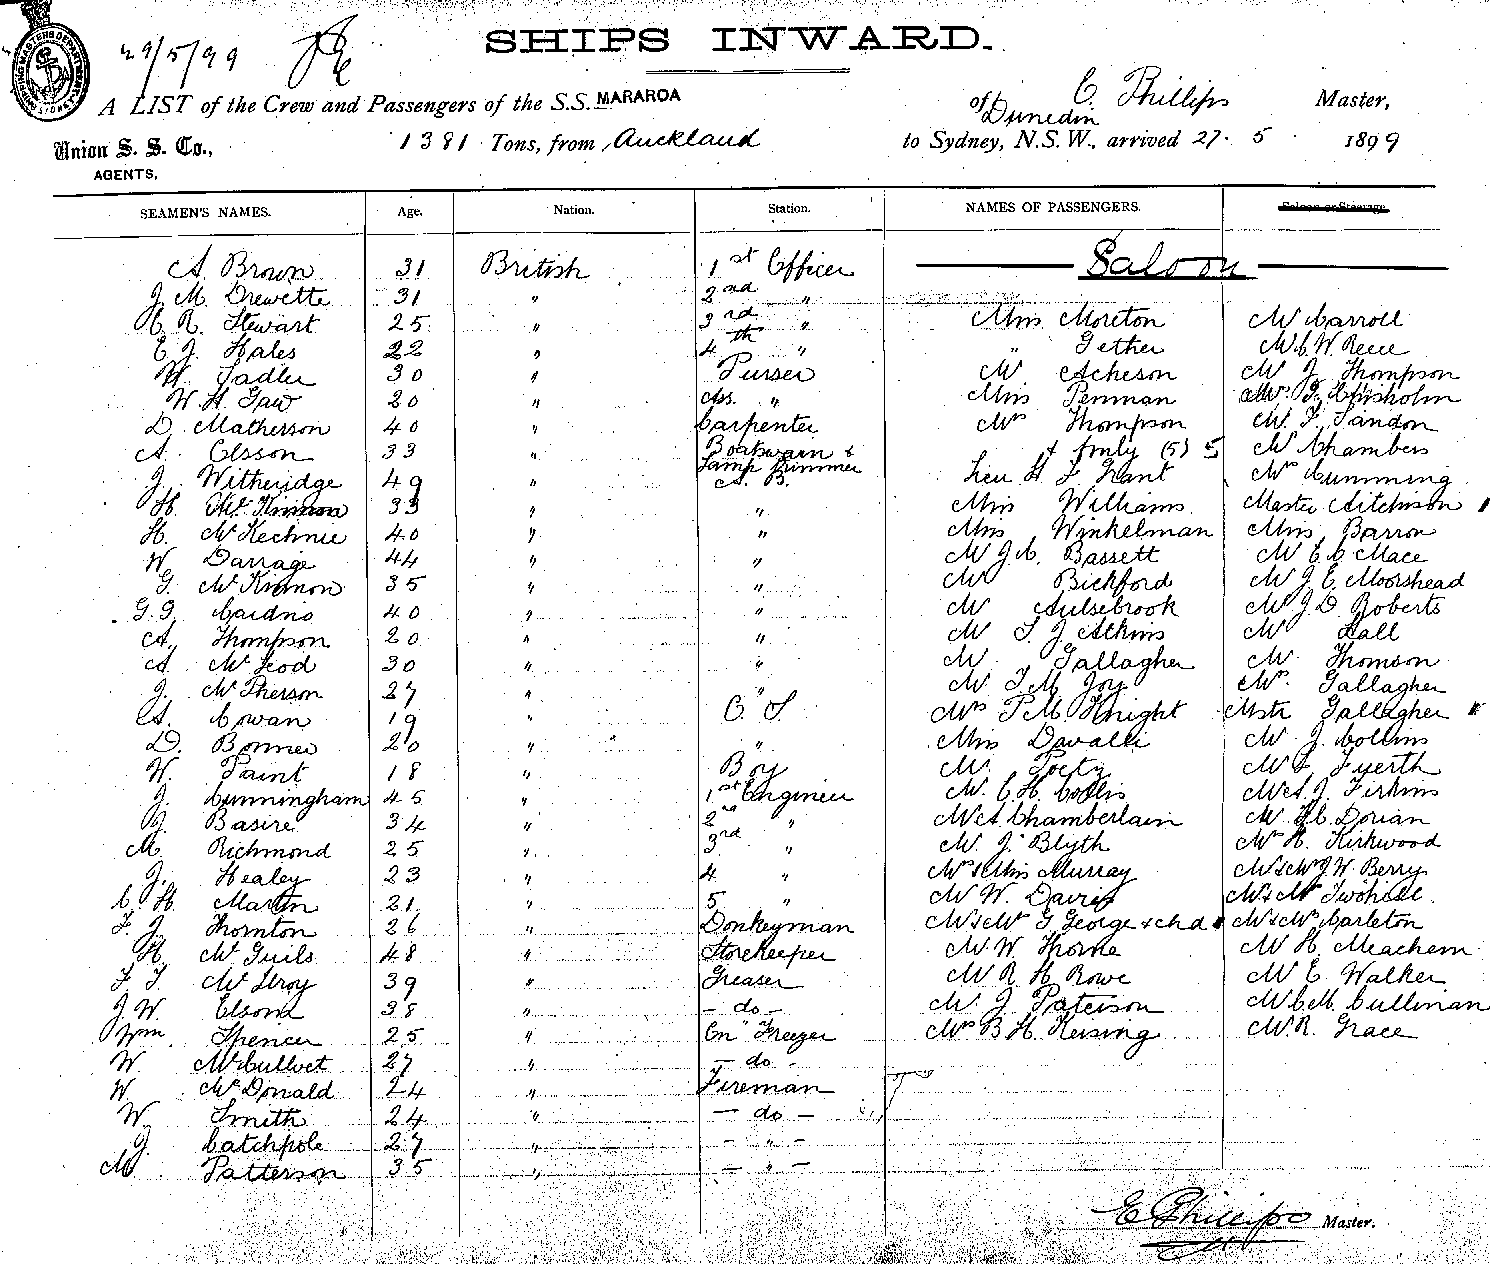 29/5/99
SHIPS INWARD.
A LIST of the Crew and Passengers of the S.S. MARAROA of Dunedin C. Phillips Master,
Union S. S. Co., AGENTS,
1381 Tons, from Auckland to Sydney, N.S.W., arrived 27. 5 1899
SEAMEN'S NAMES. Age. Nation. Station. NAMES OF PASSENGERS. Saloon or Steerage
A. Brown 31 British 1st Officer Saloon
J. M. Drewette 31 " 2nd "
C. R. Stewart 25 " 3rd " Miss Moreton Mr Carroll
E J. Hales 22 " 4th " " Gether Mr C. W. Reece
W. Sadler 30 " Purser Mr Acheson Mr J. Thompson
W. H. Gaw 20 " Ass. " Miss Penman Chisholm
D. Matherson 40 " Carpenter Mrs Thompson Mr F. Sandon
A. Olsson 33 " Boatswain & Lamp Trimmer & fmly (5) 5 Mr Chambers
J. Witheridge 49 " A. B. Lieu H F. Grant Mrs Cumming
H. McKinnon 33 " " Miss Williams Master Aitchison 1
H. McKechnie 40 " " Miss Winkelman Miss Barron
W. Darrage 44 " " Mr J. C. Bassett Mr E C Mace
G. McKinnon 35 " " Mr Bickford Mr J. E. Moorshead
G. G. Cairdno 40 " " Mr Aulsebrook Mr J. D. Roberts
A. Thompson 20 " " Mr S. J. Atkins Mr Lall
A. McLeod 30 " " Mr Gallagher Mr Thomson
J. McPherson 27 " " Mr T. M. Joy Mrs Gallagher
A. Cowan 19 " O. S. Mrs P. M. Knight Mstr Gallagher
D. Bonner 20 " " Miss Davalli Mr J. Collins
W. Paint 18 " Boy Mr Poetz Mr L Fuerth
J. Cunningham 45 " 1st Engineer Mr C. H. Collis Mr A. J. Firkins
J. Basire 34 " 2nd " Mr A Chamberlain Mr Dorian
M. Richmond 25 " 3rd " Mr J. Blyth Mr H. Kirkwood
J. Healey 23 " 4 " Mrs & Miss Murray Mr & Mrs J. W. Berry
C. H. Martin 21 " 5 " Mr W. Davis Mr & Mrs Twohill
F. J. Thornton 26 " Donkeyman Mr & Mrs G George & chd Mr & Mrs Carleton
H. McGuils 48 " Storekeeper Mr W. Thorne Mr H. Meachem
F. T. McIlroy 39 " Greaser Mr R H Rowe Mr E. Walker
J. W. Elsom 38 " - do - Mr J Paterson Mr C. M. Cullinan
Wm. Spencer 25 " En Freezer Mrs B H. Keising Mr R. Grace
W McCullvet 27 " - do -
W McDonald 24 " Fireman
W. Smith 24 " - do -
J. Catchpole 27 " - " -
M Patterson 35 " - " -
C Phillips Master.